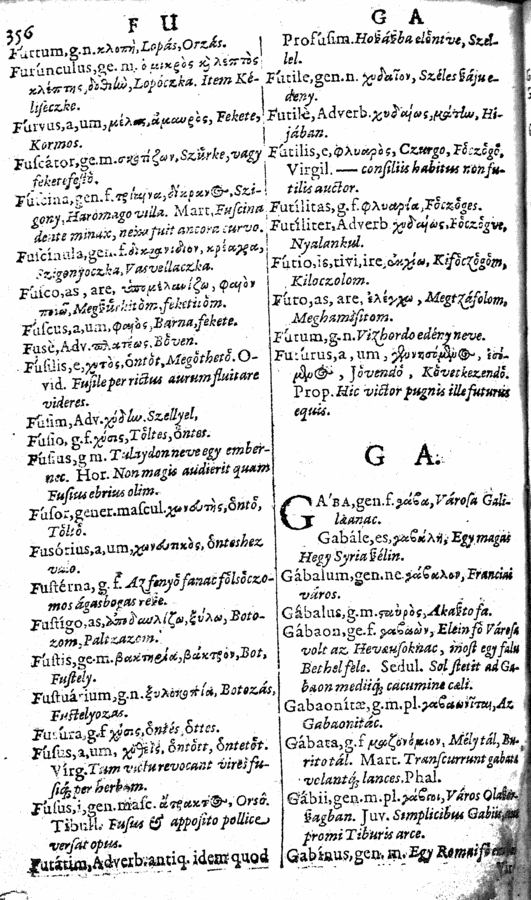 356
F U
Furtum, g.n. κλοπὴ, Lopás, Orzás.
Furúnculus, ge. m. ὁ μικρὸς κλεπτὸς
κλέπτης, Lopóczka. Item Ké-
liſéczke.
Furvus, a, um, μέλας, ἀμαυρὸς, Fekete,
Kormos.
Fuſcátor, ge.m. σκοτίζων, Szürke, vagy
feketeſéſtő.
Fuſcina, gen. f. τρίαινα, Szi-
gony, Háromago villa. Mart. Fuſcina
dente minax, ne fuit ancora curvo.
Fuſcinula, gen. f. κρέαγρα,
Szigonyoczka, Vasvellaczka.
Fuſco, as, are, φαιὸν
ποιῶ, feketitőm.
Fuſcus, a, um, φαιὸς, Barna, fekete.
Fusè, Adv. πλατέως, Bőven.
Fuſilis, e, χυτὸς, őntőt, Megőthető. O-
vid. Fuſile per rictus aurum fluitare
videres.
Fuſim, Adv. χύδην, Szellyel,
Fuſio, g. f. χύσις, Tőltes, őntes.
Fuſius, g m. Tulaydon neve egy ember-
nec. Hor. Non magis audierit quam
Fuſius ebrius olim.
Fuſor, gener. maſcul. χωνευτὴς, őntő,
Tőltő.
Fusórius, a, um, χωνευτικὸς, őnteshez
való.
Fuſtérna, g. f. Az fenyő fanac főlsőczo-
mos ágasbogas reſze.
Fuſtigo, as, ξύλω, Boto-
zom, Paltzazom.
Fuſtis, ge. m. βακτηρία, βάκτρον, Bot,
Fuſtely.
Fuſtuárium, g.n. ξυλοκοπία, Botozás,
Fuſtelyozas.
Fusúra, g. f χύσις, őntés, őttes.
Fuſus, a, um, őntőtt, őntetőt.
Virg. Tum victu revocant vires fu-
ſiq́; per herbam.
Fuſus, i, gen. maſc. ἄτρακτος, Orsó.
Tibull. Fuſus & appoſito pollice
verſat opus.
Futátim, Adverb. antiq. idem quod
G A
Profuſim. Hoſáſba előntve, Szel-
lel.
Fútile, gen. n. χυδαῖον, Széles ſáju e-
deny.
Futilè, Adverb. χυδαίως, μάτην, Hi-
jában.
Futilis, e, φλυαρὸς, Czurgo, Főczőgő,
Virgil. — conſiliis habitus non fu-
tilis auctor.
Futílitas, g. f. φλυαρία, Főczőges.
Futíliter, Adverb χυδαίως, Főczőgve,
Nyalankul.
Futio, is, tivi, ire, ἐκχέω, Kifőczőgőm,
Kiloczolom.
Futo, as, are, ἐλέγχω, Megtzáfolom,
Meghamiſitom.
Futum, g.n. Vizhordo edény neve.
Futúrus, a, um, Jővendő, Kővetkezendő.
Prop. Hic victor pugnis ille futurus
equis.
G A.
GA'BA, gen. f. γάβα, Városa Gali-
læanac.
Gabále, es, γαβάλη, Egy magas
Hegy Syria ſélin.
Gábalum, gen. ne. γάβαλον, Franciai
város.
Gábalus, g.m. ςαυρὸς, Akaſto fa.
Gábaon, ge. f. γαβαὼν, Elein fő Városa
volt az Hevæusoknac, most egy falu
Bethel fele. Sedul. Sol ſtetit ad Ga-
baon mediiq́; cacumine cæli.
Gabaonítæ, g. m. pl. γαβαωνῖται, Az
Gabaonitác.
Gábata, g. f μαζονόμιον, Mély tál, Bu-
rito tál. Mart. Transcurrunt gabatæ
volantq́; lances. Phal.
Gábii, gen. m. pl. γάβιοι, Város Olaſor-
ſagban. Juv. Simplicibus Gabiis,
promi Tiburis arce.
Gabínus, gen. m. Egy Romai